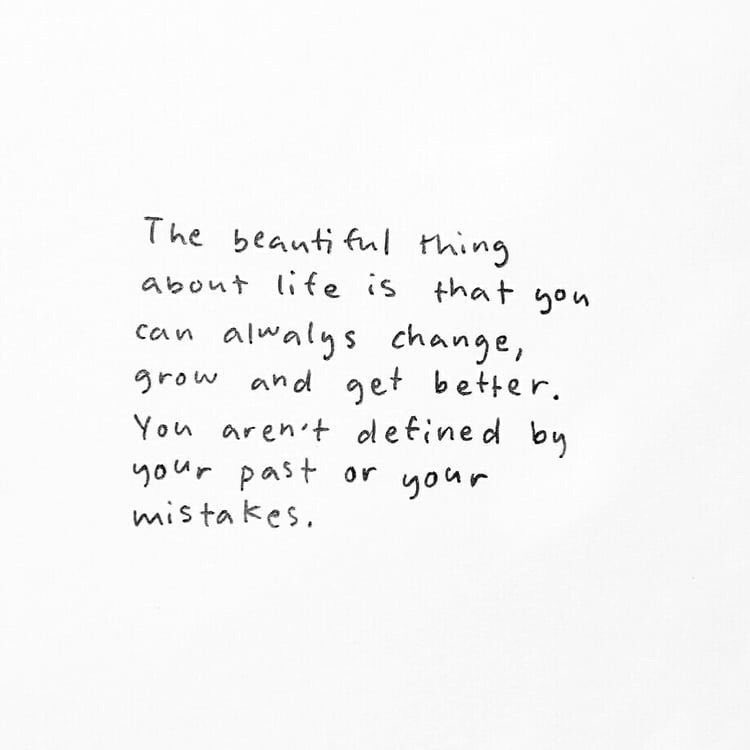 The beautiful thing
about life is that you
can alwalys change,
grow and get better.
You aren't defined by
your past or your
mistakes.